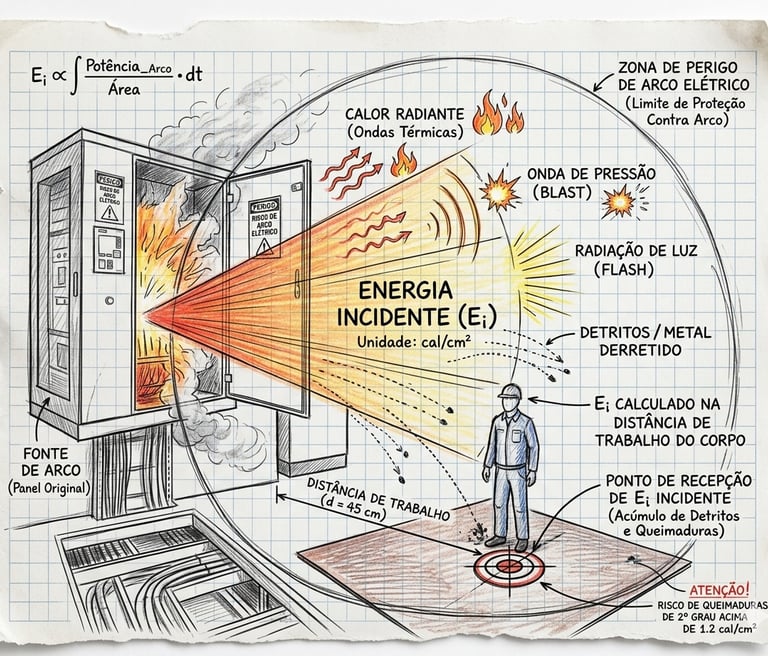 Ei ∝ ∫ Potência_Arco / Área · dt
ZONA DE PERIGO
DE ARCO ELÉTRICO
(Limite de Proteção
Contra Arco)
CALOR RADIANTE
(Ondas Térmicas)
ONDA DE PRESSÃO
(BLAST)
RADIAÇÃO DE LUZ
(FLASH)
PERIGO
RISCO DE
ARCO
ELÉTRICO
ENERGIA
INCIDENTE (Ei)
Unidade: cal/cm²
DETRITOS / METAL
DERRETIDO
Ei CALCULADO NA
DISTÂNCIA DE
TRABALHO DO CORPO
FONTE
DE ARCO
(Panel Original)
DISTÂNCIA DE TRABALHO
(d = 45 cm)
PONTO DE RECEPÇÃO
DE Ei INCIDENTE
(Acúmulo de Detritos
e Queimaduras)
ATENÇÃO!
RISCO DE QUEIMADURAS
DE 2º GRAU ACIMA
DE 1.2 cal/cm²